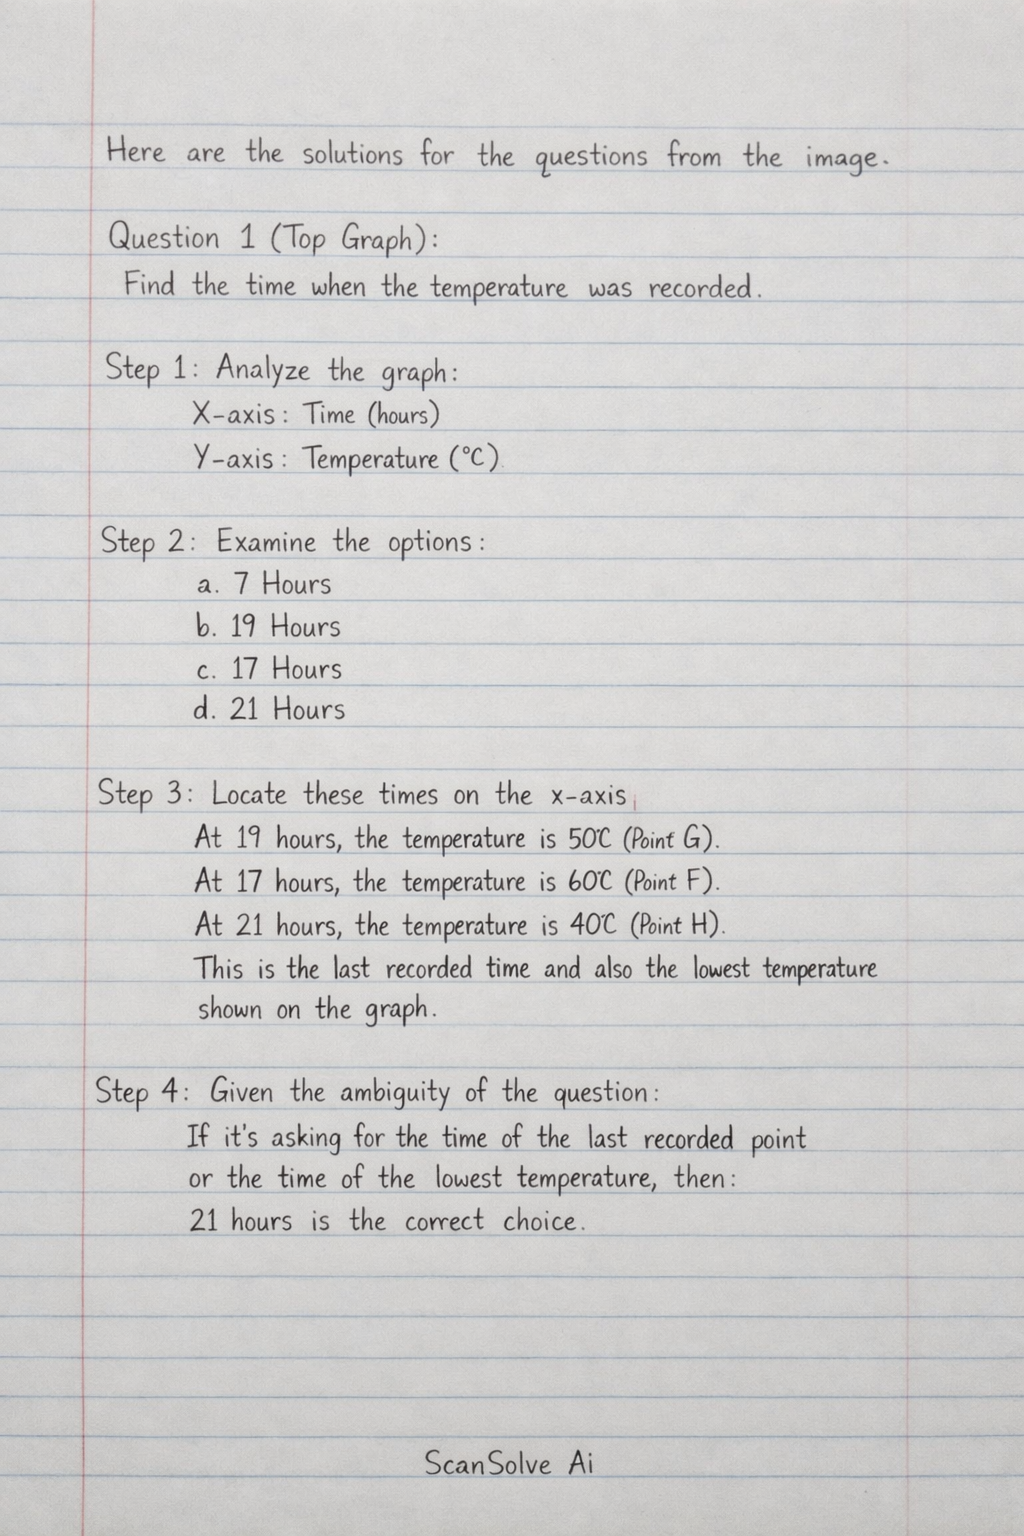 Here are the solutions for the questions from the image.
Question 1 (Top Graph):
Find the time when the temperature was recorded.
Step 1: Analyze the graph:
X-axis: Time (hours)
Y-axis: Temperature (°C)
Step 2: Examine the options:
a. 7 Hours
b. 19 Hours
c. 17 Hours
d. 21 Hours
Step 3: Locate these times on the x-axis
At 19 hours, the temperature is 50℃ (Point G).
At 17 hours, the temperature is 60℃ (Point F).
At 21 hours, the temperature is 40℃ (Point H).
This is the last recorded time and also the lowest temperature
shown on the graph.
Step 4: Given the ambiguity of the question:
If it's asking for the time of the last recorded point
or the time of the lowest temperature, then:
21 hours is the correct choice.
ScanSolve Ai